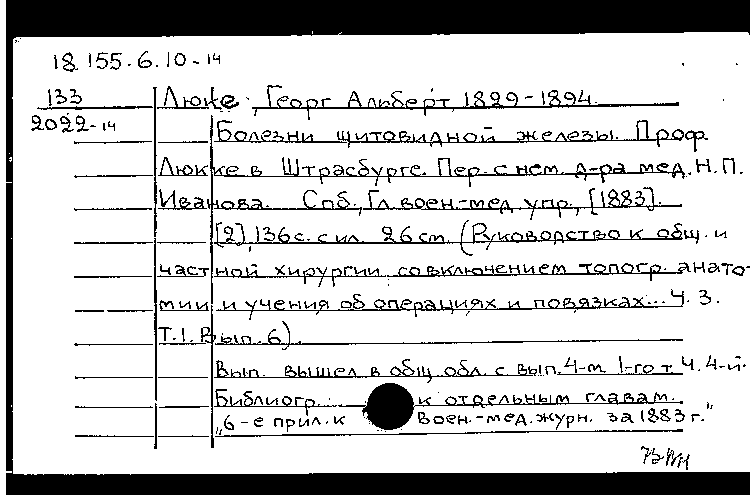 18.155.6.10-14
133 Люке, Георг Альберт, 1829-1894.
2022-14 Болезни щитовидной железы. Проф.
Люкке в Штрасбурге. Пер. с нем. д-ра мед. Н.П.
Иванова. Спб., Гл. воен.-мед. упр., [1883].
[2], 136 с. с ил. 26 см. (Руководство к общ. и
частной хирургии со включением топогр. анато-
мии и учения об операциях и повязках... Ч. 3.
Т.1. Вып. 6).
Вып. вышел в общ. обл. с вып. 4-м 1-го т. Ч. 4-й.
Библиогр.: к отдельным главам.
"6-е прил. к Воен.-мед. журн. за 1883 г."